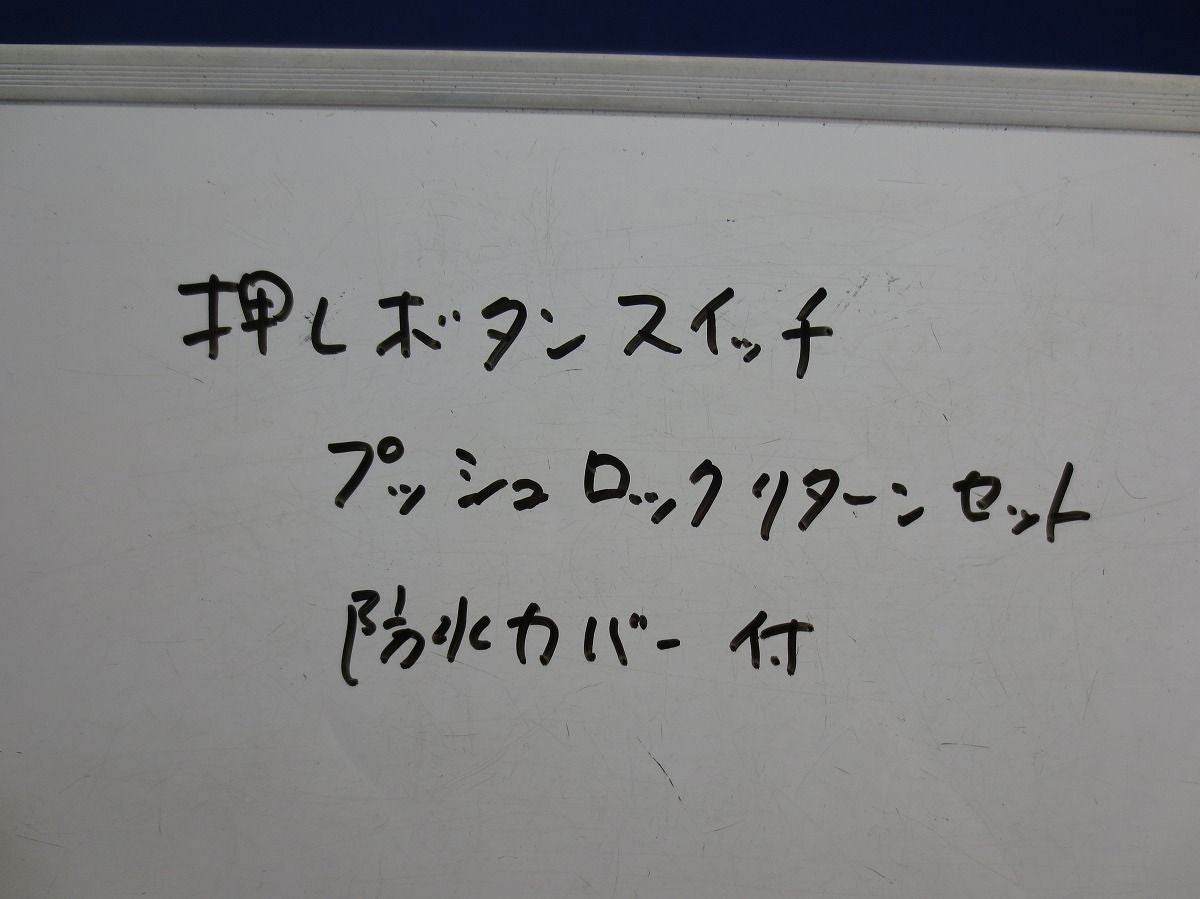 押しボタンスイッチ
プッシュロックリターンセット
防水カバー付